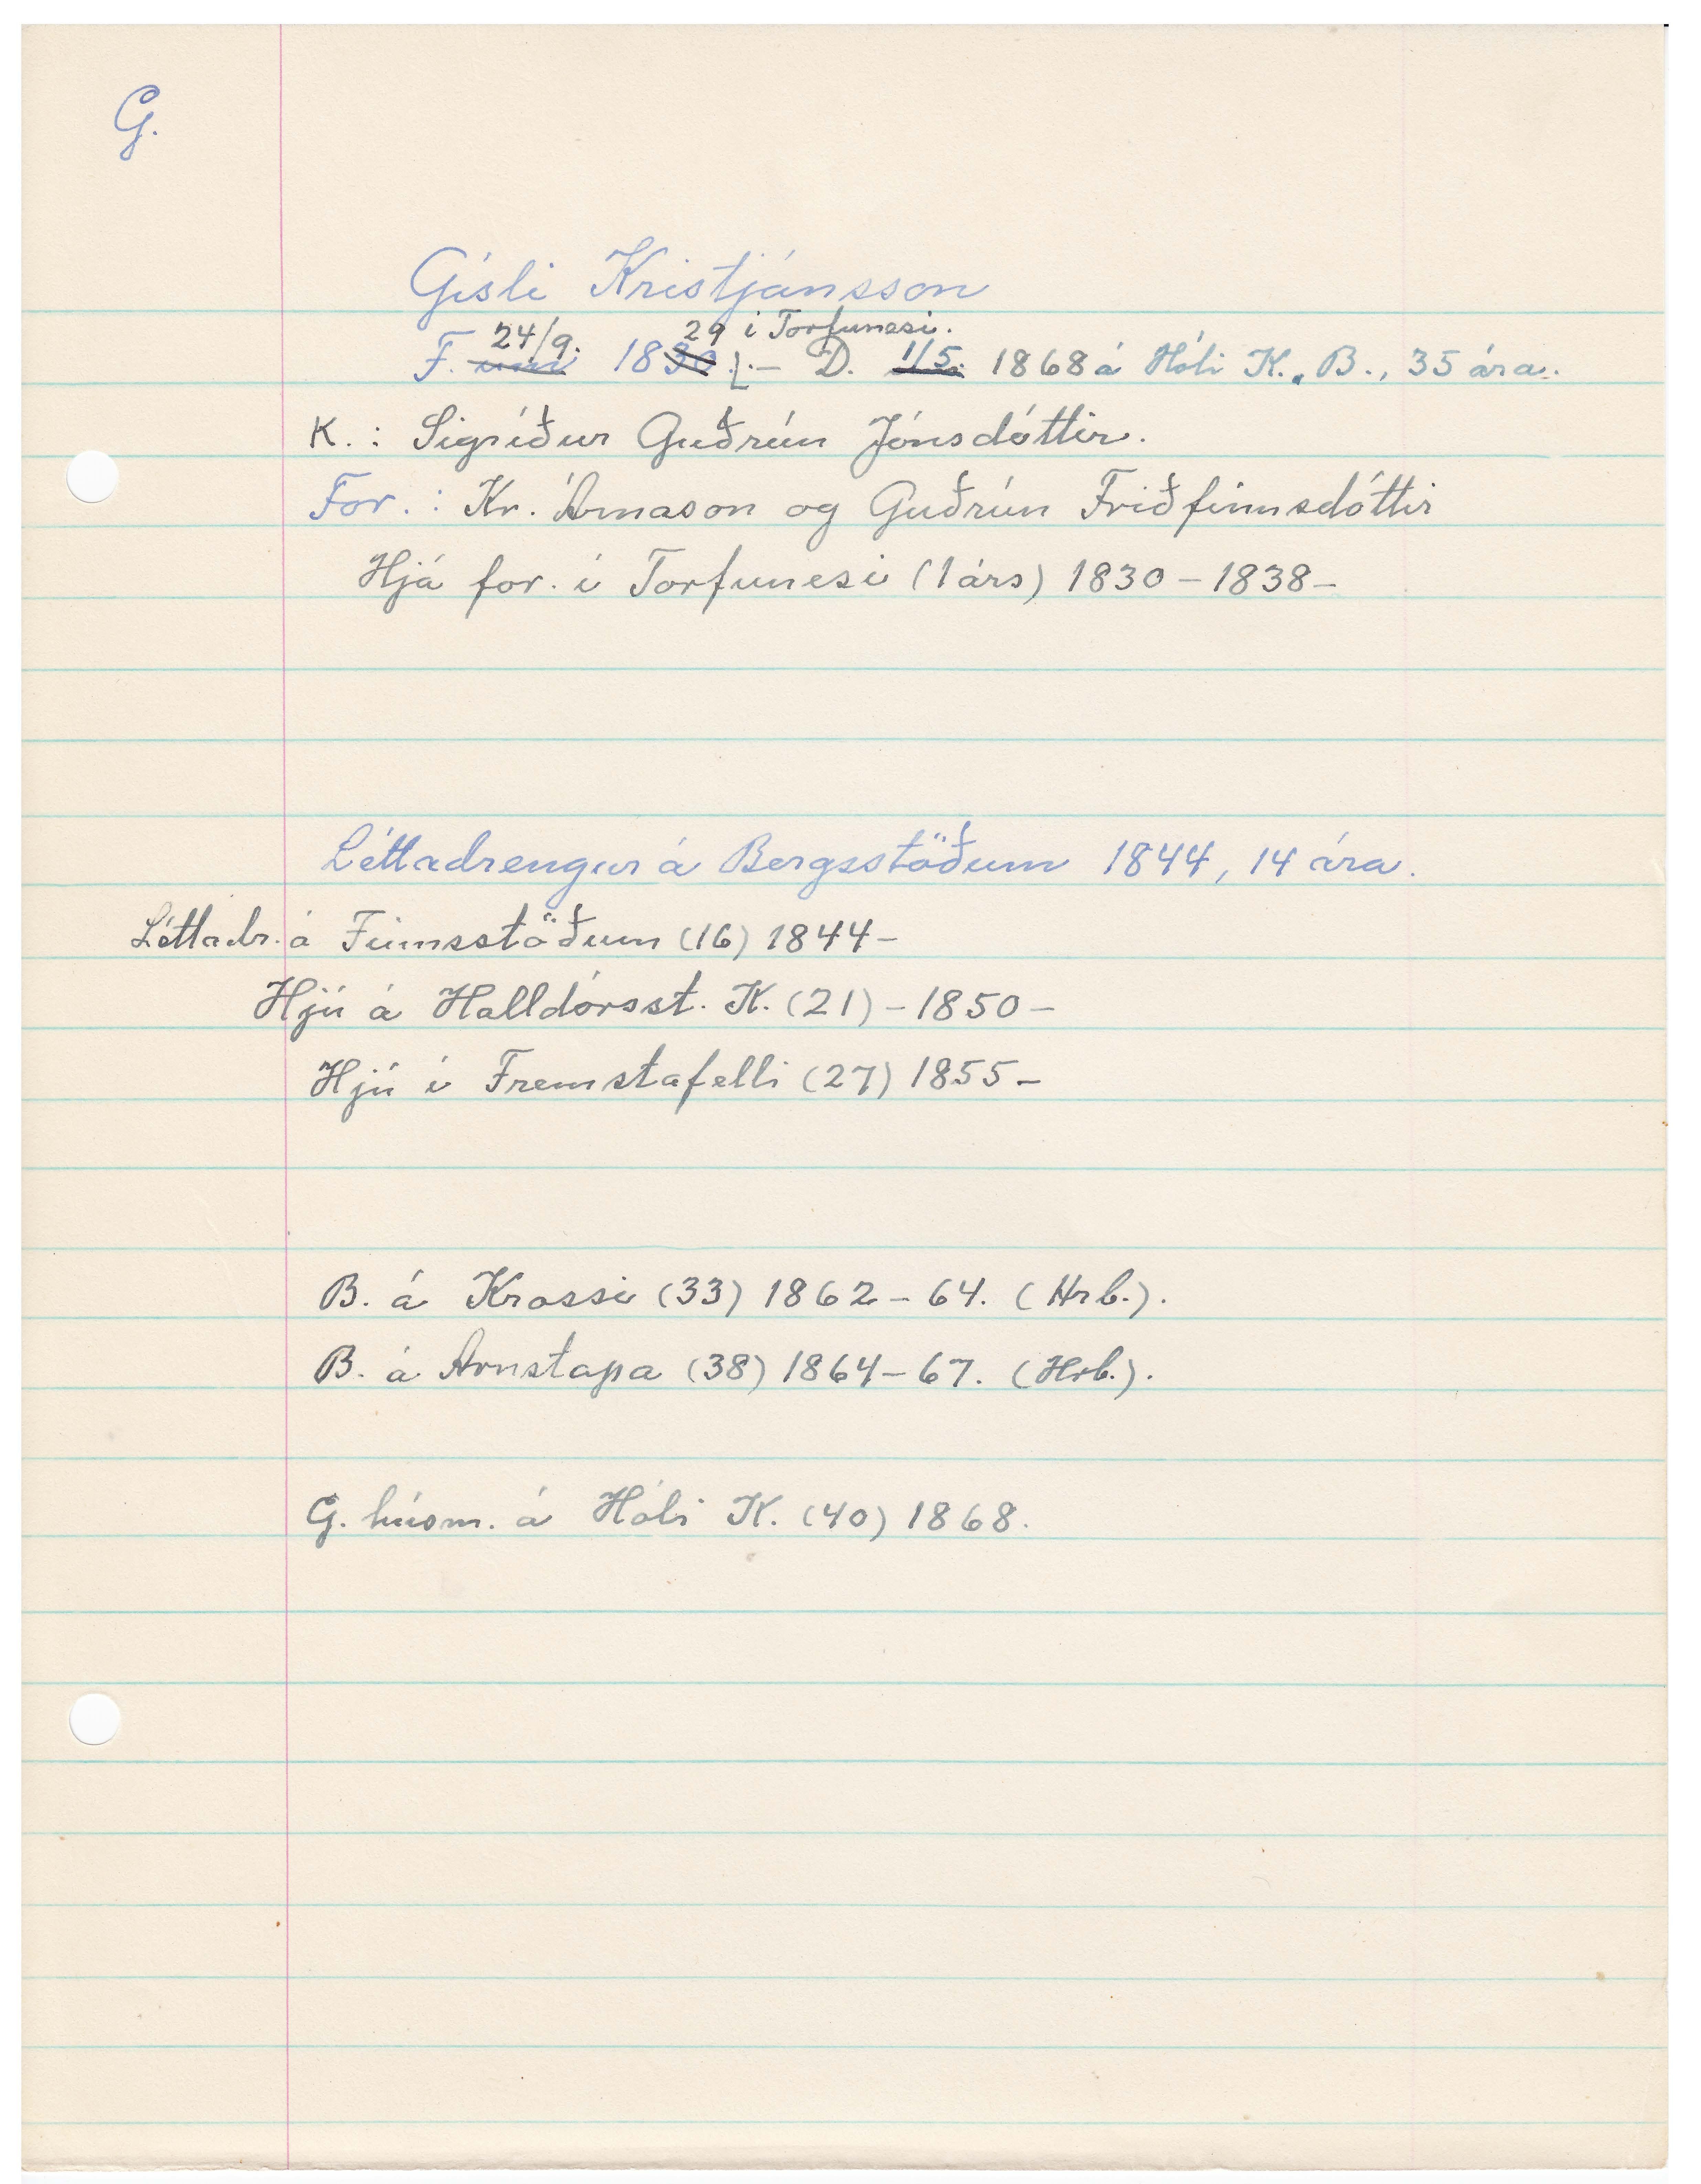 G.
Gísli Kristjánsson
24/9. 29 í Torfunesi.
F. 1830 .- D. 1/5. 1868 á Hóli K., B., 35 ára.
K.: Sigríður Guðrún Jónsdóttir.
For.: Kr. Árnason og Guðrún Friðfinnsdóttir
Hjá for. í Torfunesi (1 árs) 1830 - 1838 -
Léttadrengur á Bergsstöðum 1844, 14 ára.
Léttadr. á Finnsstöðum (16) 1844 -
Hjú á Halldórsst. K. (21) - 1850 -
Hjú í Fremstafelli (27) 1855 -
B. á Krossi (33) 1862 - 64. (Hrb.).
B. á Arnstapa (38) 1864 - 67. (Hrb.).
G. húsm. á Hóli K. (40) 1868.